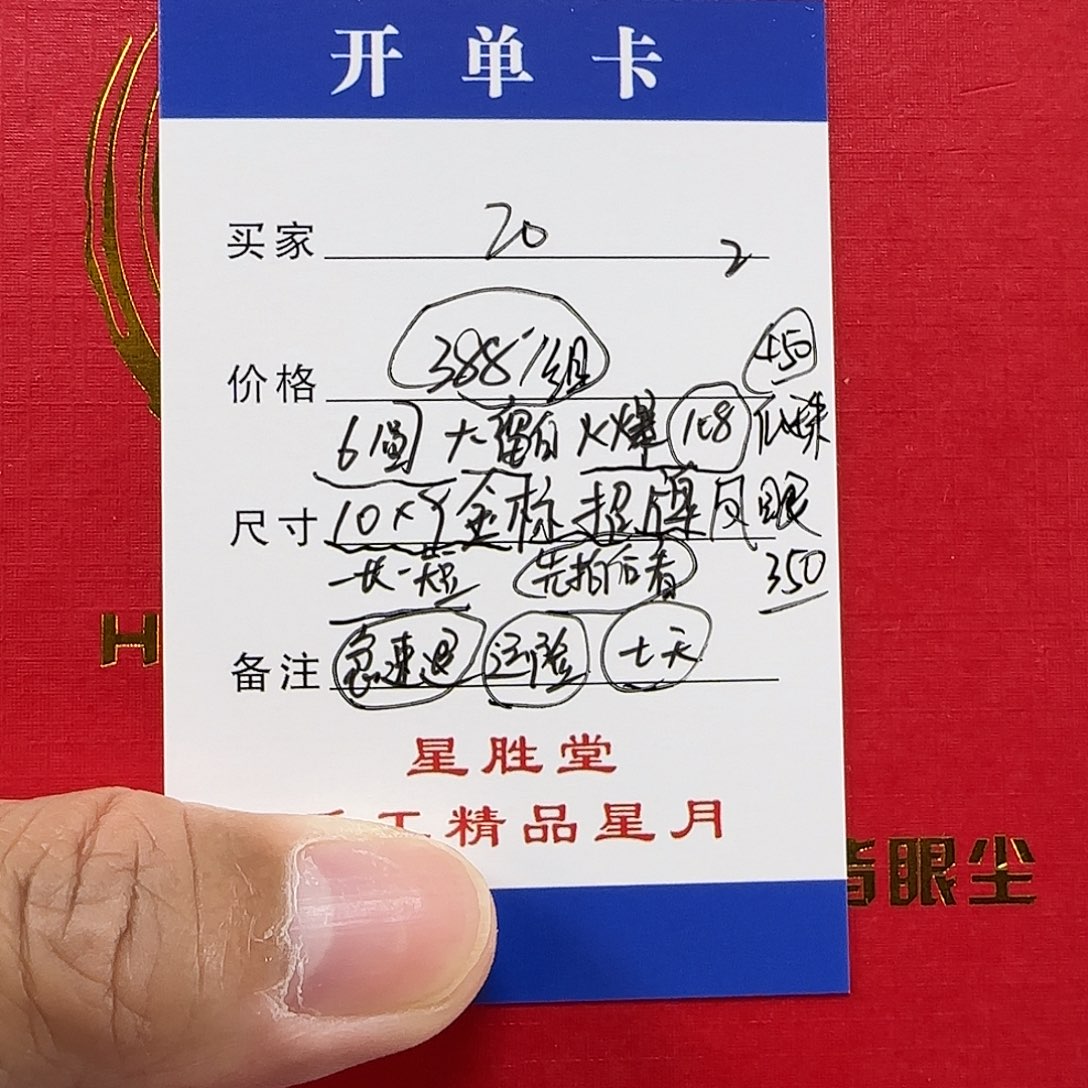 开单卡
买家 20 2
价格 388/组 +50
6圆 大留白火爆 108 佛珠
尺寸 10×8 金标 招牌凤眼
一长一短 先拍后看 350
备注 急速退 运险 七天
星胜堂
工精品星月
H
眼尘